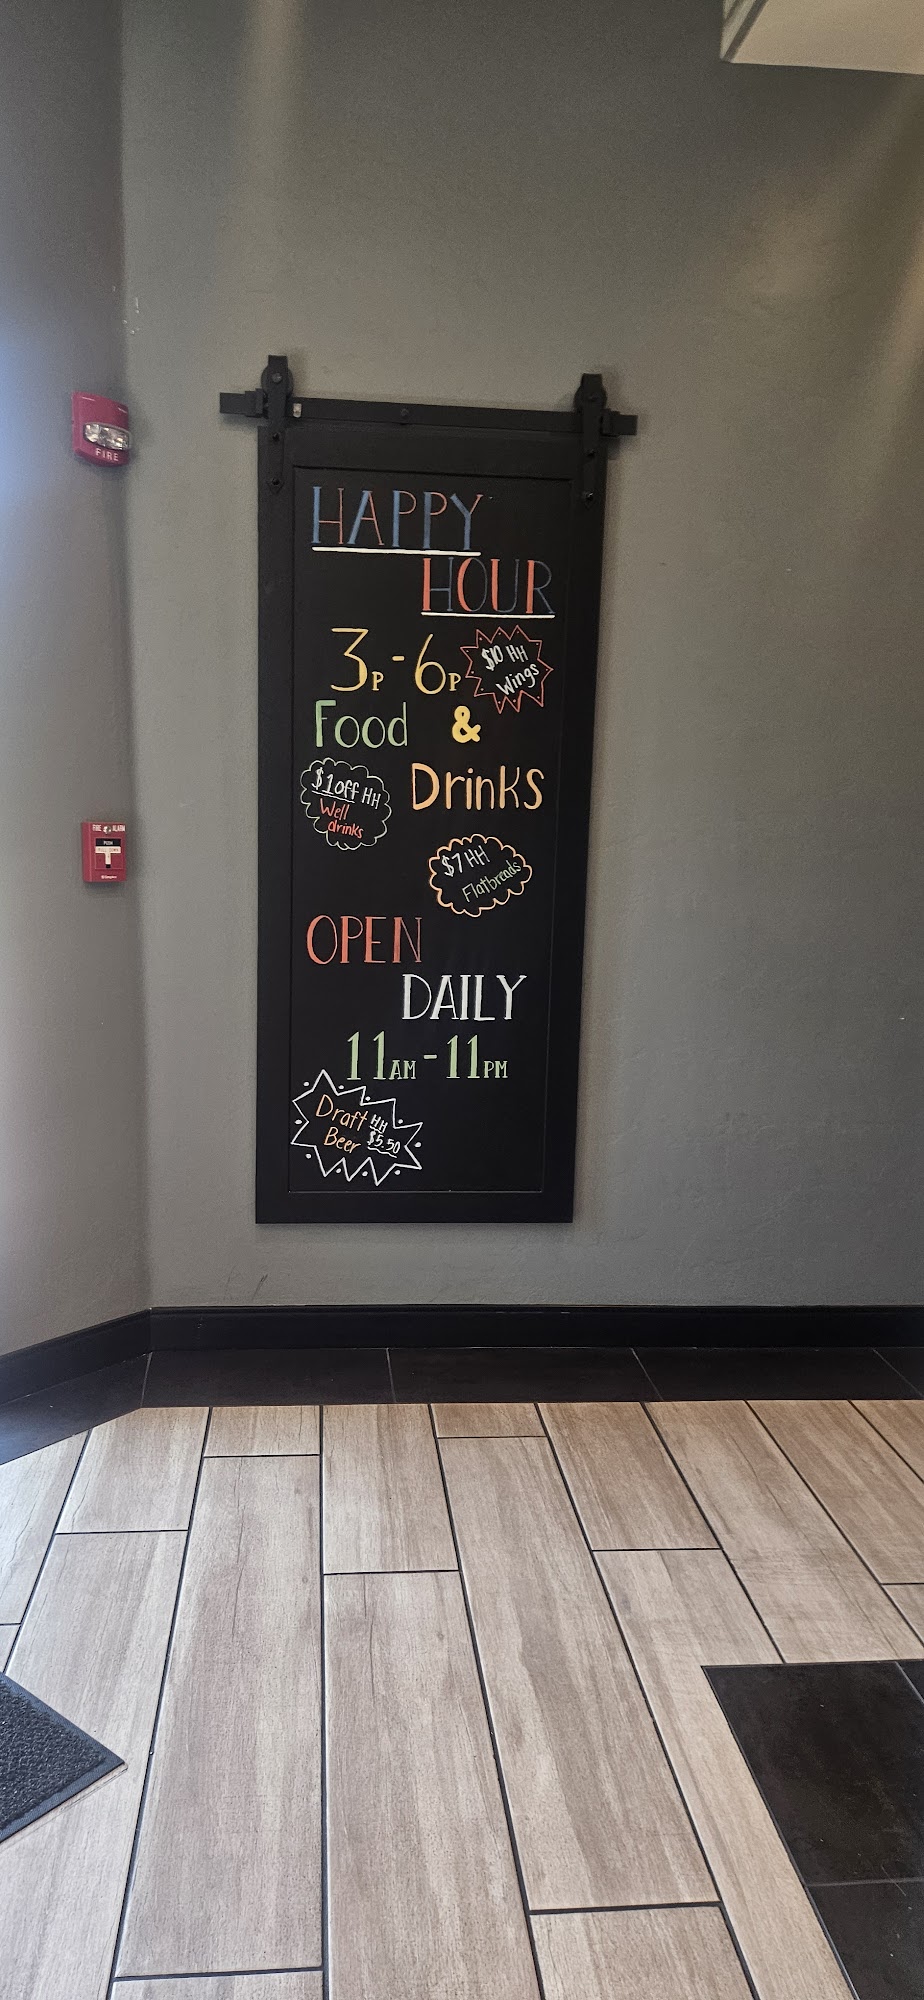 HAPPY
HOUR
3P-6P
$10 HH
Wings
Food &
Drinks
$1 off HH
Well
drinks
$7 HH
Flatbreads
OPEN
DAILY
11AM-11PM
Draft
Beer
HH
$5.50
FIRE
FIRE ALARM
PUSH